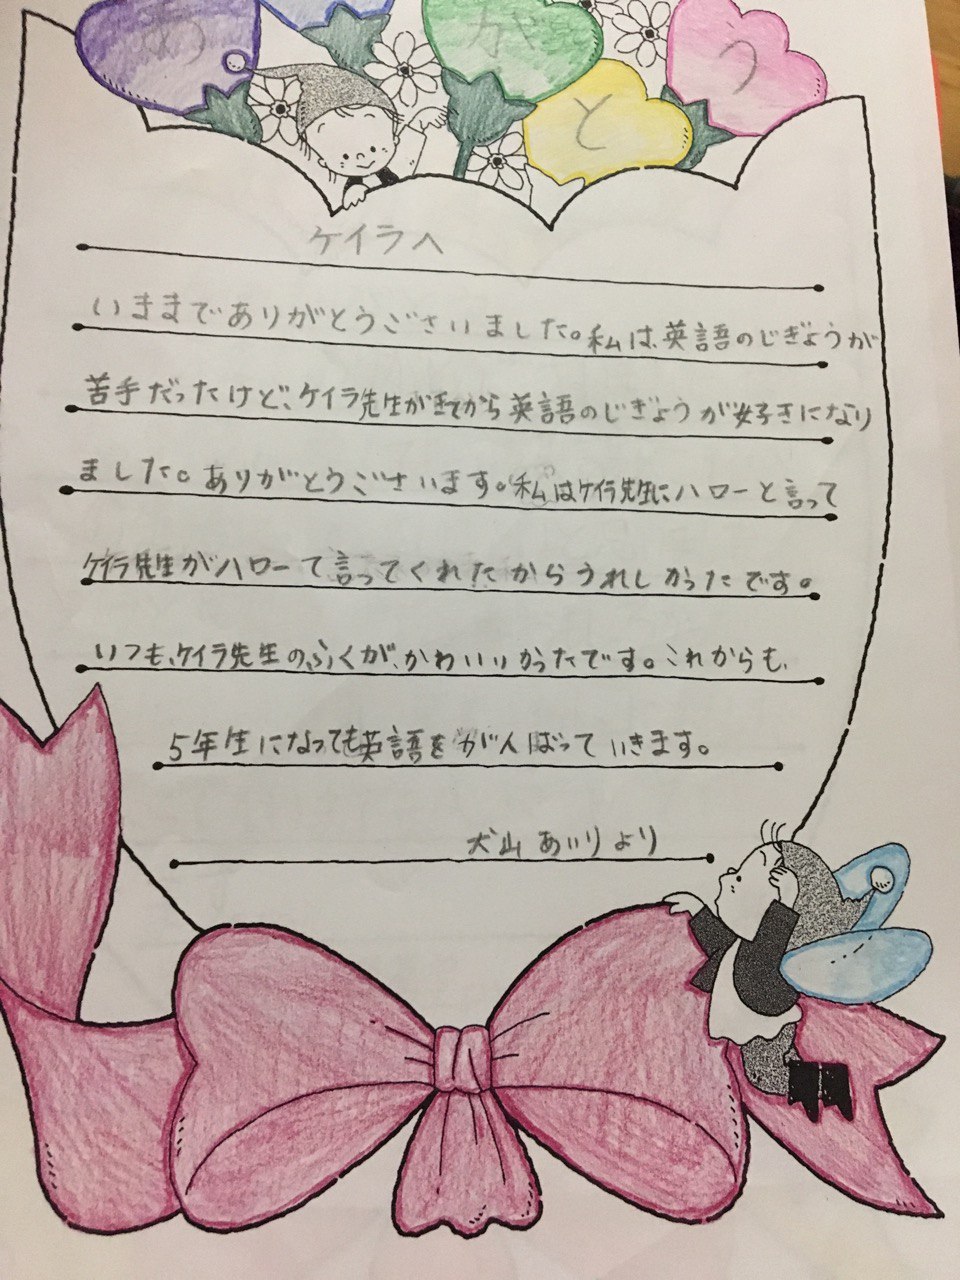 あ
が
と
う
ケイラへ
いままでありがとうございました。私は、英語のじぎょうが
苦手だったけど、ケイラ先生がきてから英語のじぎょうが好きになり
ました。ありがとうございます。私はケイラ先生にハローと言って
ケイラ先生がハローて言ってくれたからうれしかったです。
いつも、ケイラ先生のふくが、かわいいかったです。これからも、
5年生になっても英語をがんばっていきます。
犬山あいりより